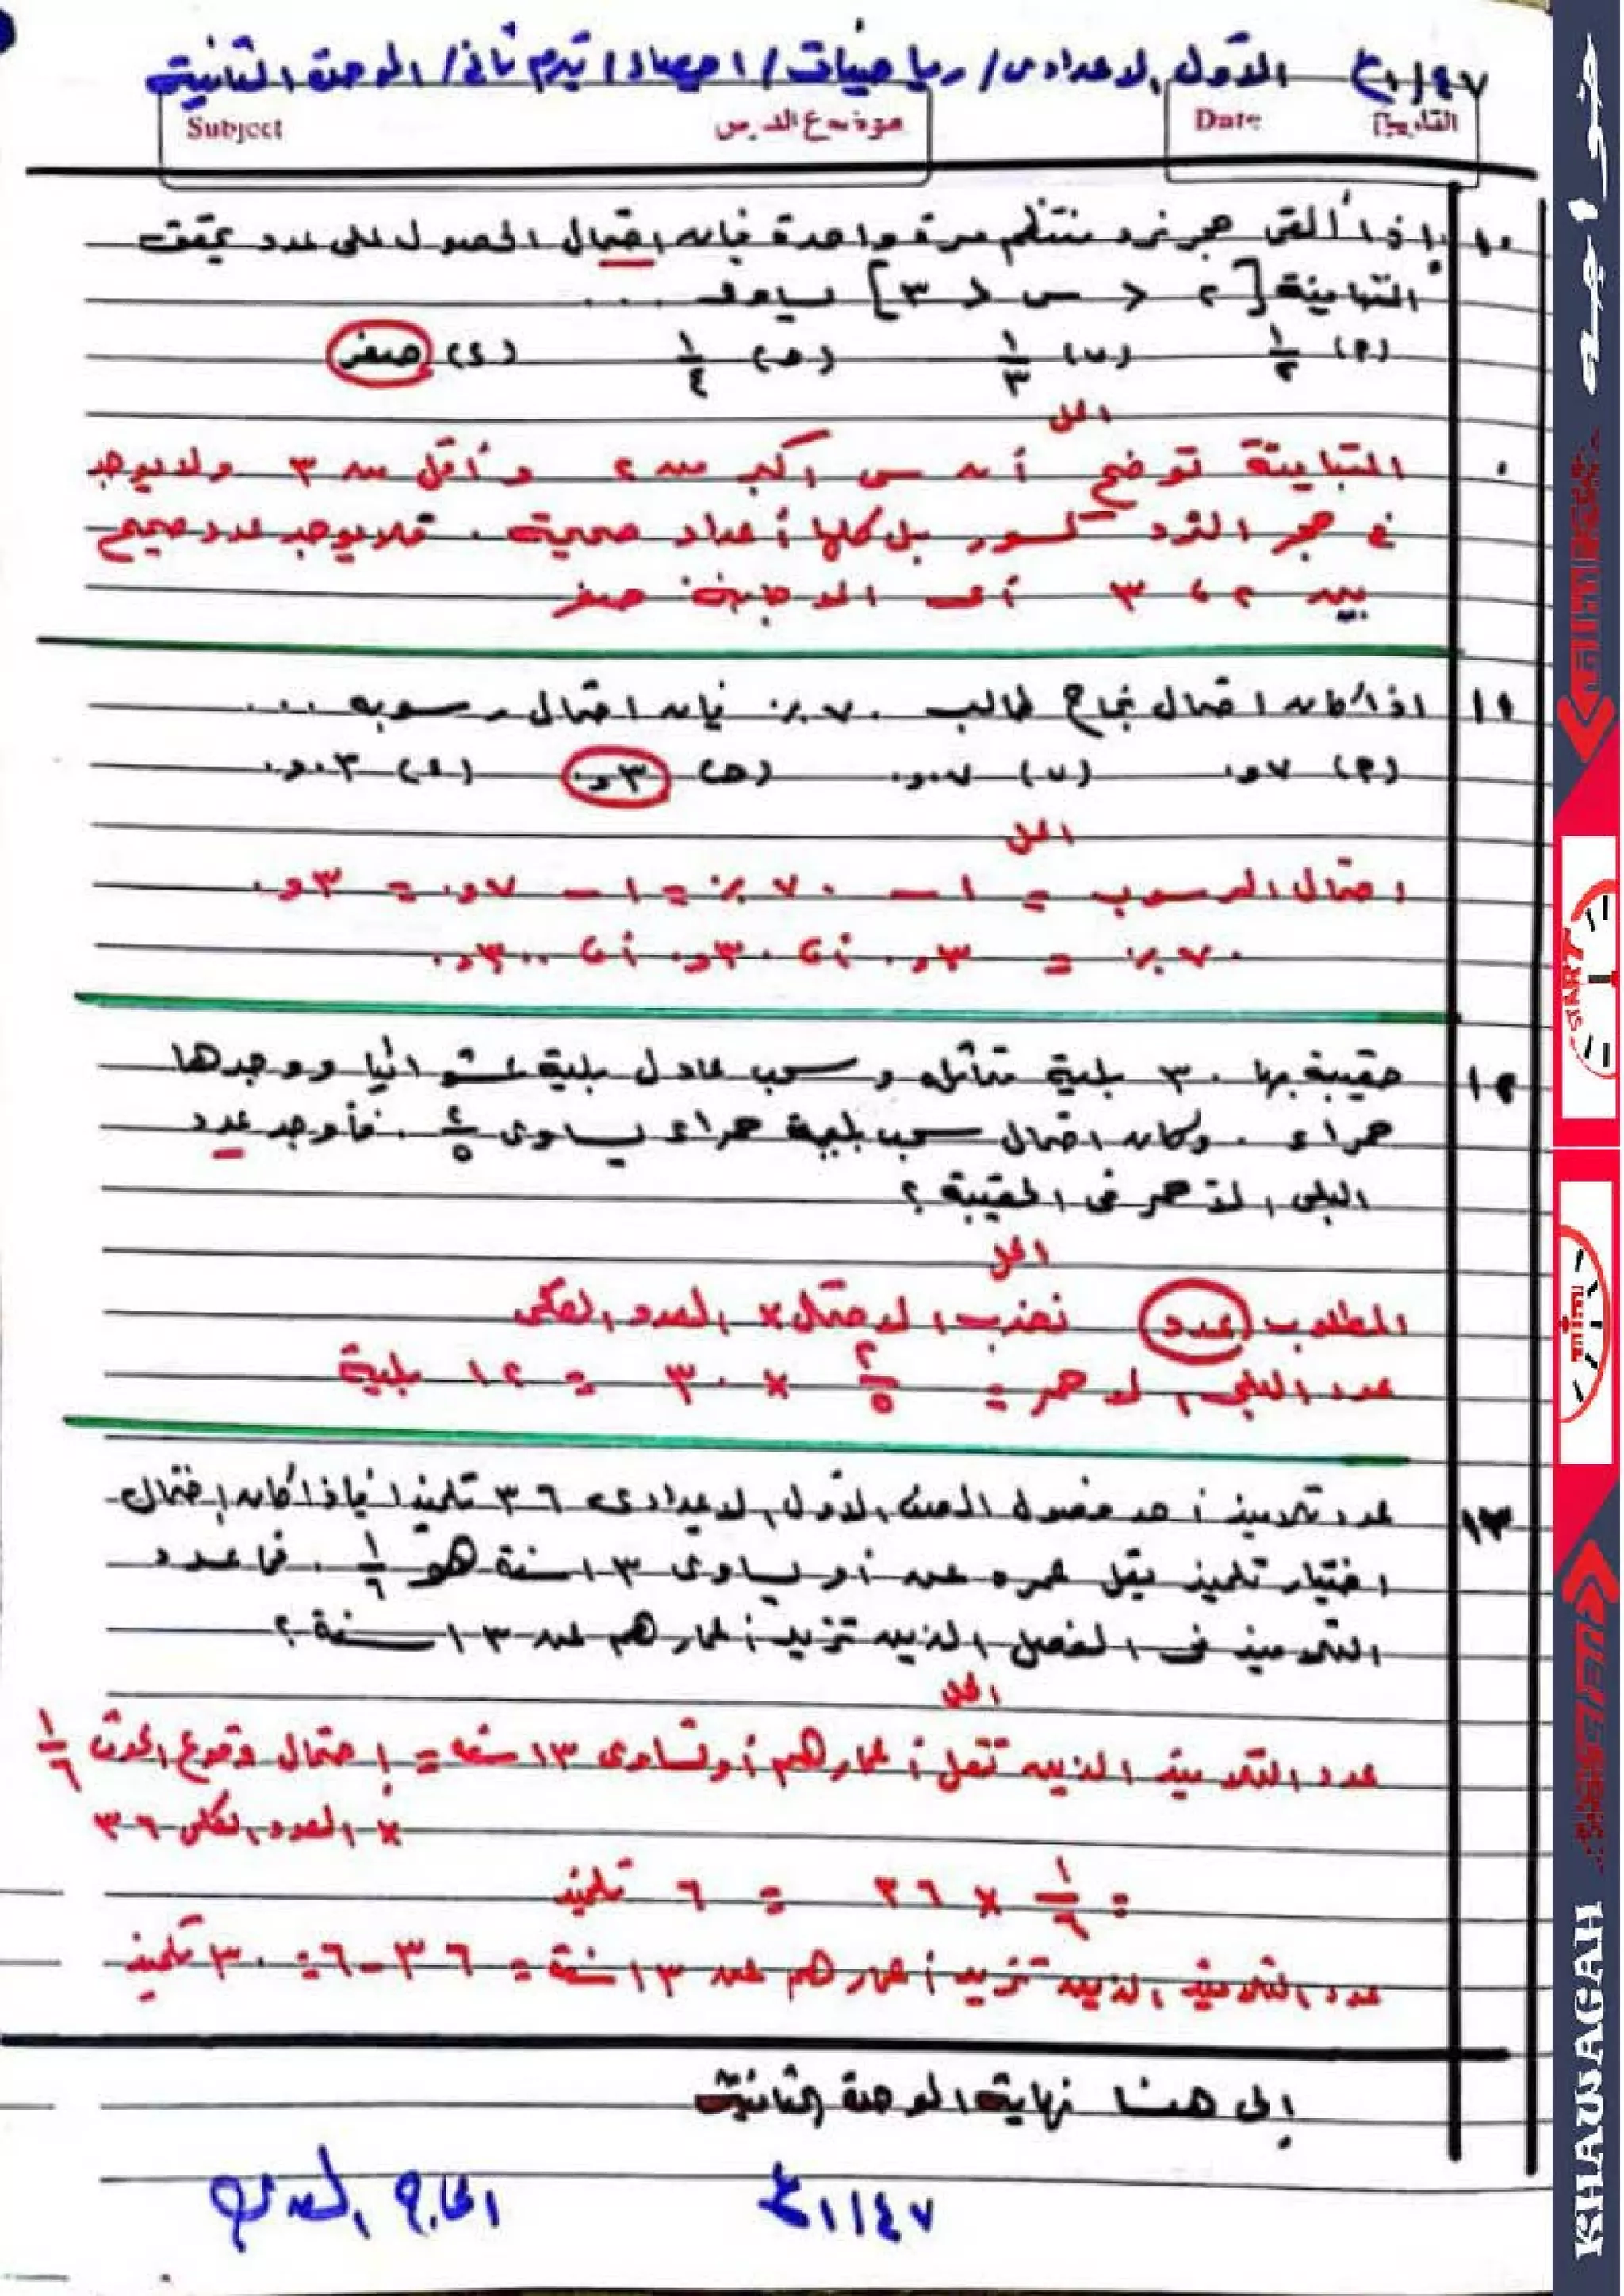 ٤٧/ع١ الأول الاعدادى/ رياضيات/ احصاء/ تيرم ثانى/ الوحدة الثانية
Subject موضوع الدرس Date التاريخ
١٠ إذا ألقى حجر نرد منتظم مرة واحدة فإن احتمال الحصول على عدد يحقق
المتباينة [٢ < س < ٣] يساوى ...
(٩) ١/٢ (ب) ١/٣ (ح) ١/٤ (٤) صفر
الحل
المتباينة توضح أن س أكبر من ٢ وأقل من ٣ ولا يوجد
فى حجر النرد كسور بل كلها أعداد صحيحة . فلا يوجد عدد صحيح
بين ٢ ، ٣ أى الاجابة: صفر
١١ اذا كان احتمال نجاح طالب ٧٠٪ فإن احتمال رسوبه ...
(٩) ٠,٧ (ب) ٠,٠٧ (ح) ٠,٣ (٤) ٠,٠٣
الحل
احتمال الرسوب = ١ – ٧٠٪ = ١ – ٠,٧ = ٠,٣
٧٠٪ = ٠,٣ أ، ٠,٣٠ أ، ٠,٣٠٠
١٢ حقيبة بها ٣٠ بلية متماثلة وسحب عادل بلية عشوائيا ووجدها
حمراء . وكان احتمال سحب بلية حمراء يساوى ٤/٥ . فأوجد عدد
البلى الأحمر فى الحقيبة ؟
الحل
المطلوب عدد نضرب الاحتمال × العدد الكلى
عدد البلى الاحمر = ٢/٥ × ٣٠ = ١٢ بلية
١٣ عدد تلاميذ أحد فصول الصف الأول الاعدادى ٣٦ تلميذا فإذا كان إحتمال
اختيار تلميذ يقل عمره عن أو يساوى ١٣ سنة هو ١/٦ . فما عدد
التلاميذ فى الفصل الذين تزيد أعمارهم عن ١٣ سنة ؟
الحل
عدد التلاميذ الذين تقل أعمارهم أو تساوى ١٣ سنة = إحتمال وقوع الحدث ١/٦
× العدد الكلى ٣٦
= ١/٦ × ٣٦ = ٦ تلميذ
عدد التلاميذ الذين تزيد أعمارهم عن ١٣ سنة = ٣٦ - ٦ = ٣٠ تلميذ
إلى هنا نهاية الوحدة الثانية
٤٧/ع١
خواجه
START
KHAWAGAH